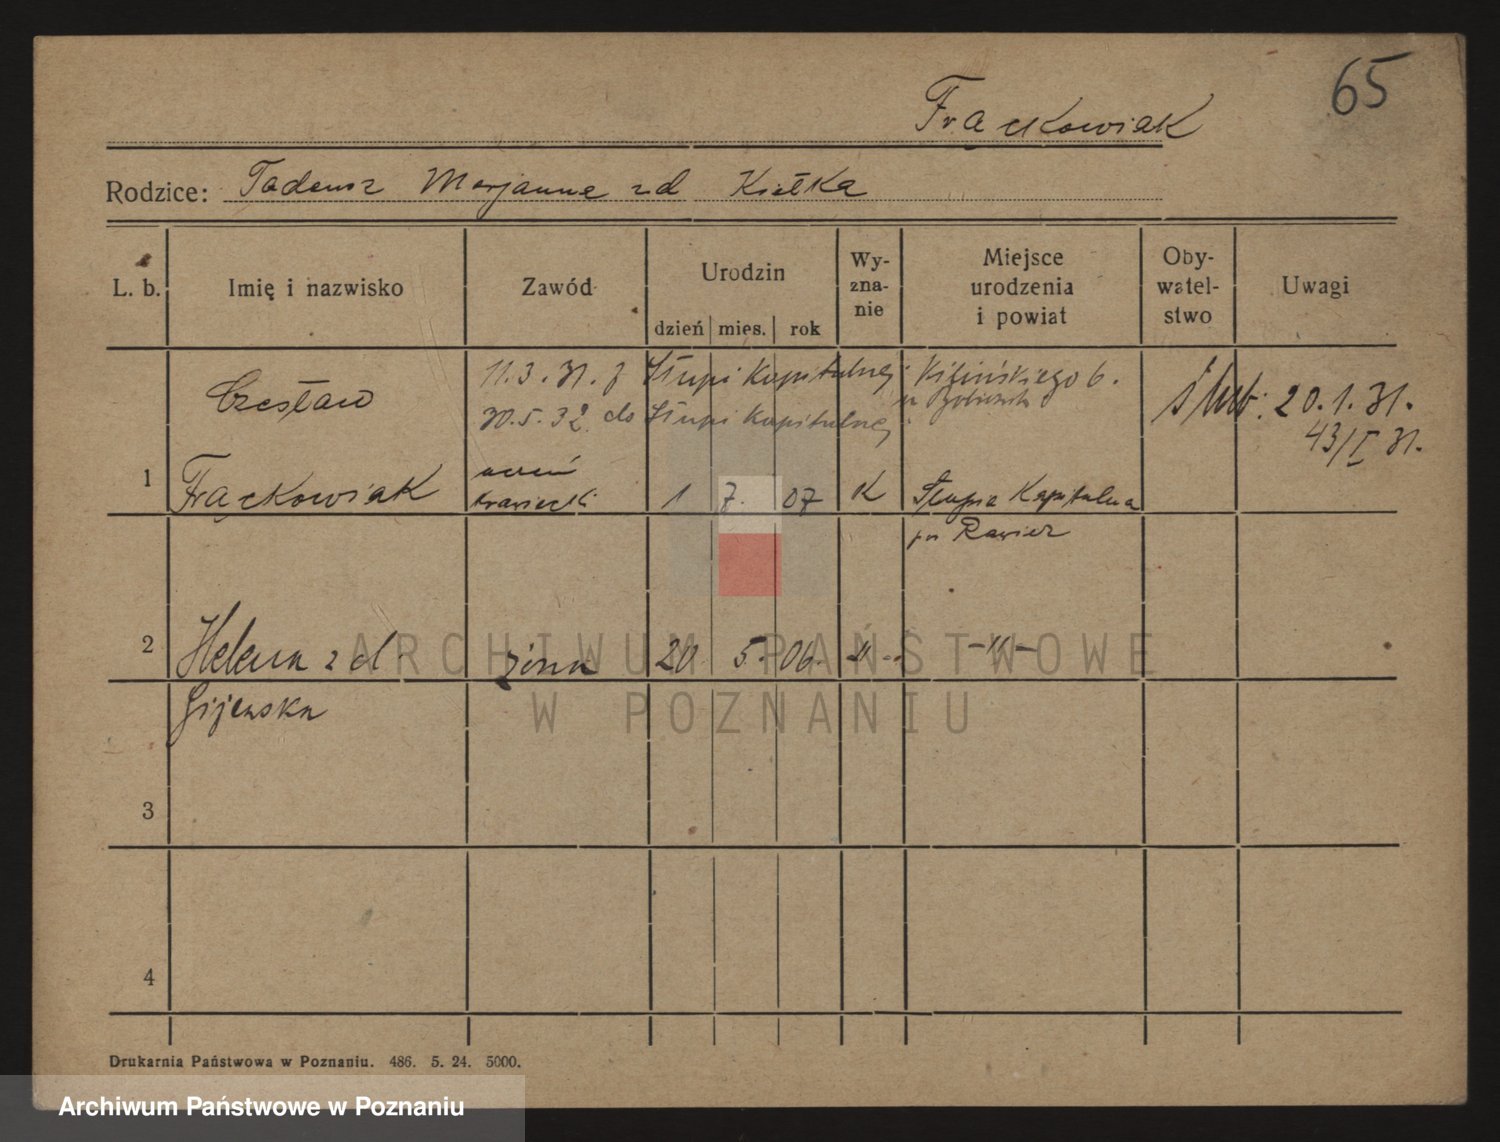 65
Frąckowiak
Rodzice: Tadeusz Marjanna zd Kiełka
L. b.
Imię i nazwisko
Zawód
Urodzin
dzień mies. rok
Wy-
zna-
nie
Miejsce
urodzenia
i powiat
Oby-
watel-
stwo
Uwagi
11.3.31. z Słupi Kapitulnej Kilińskiego 6.
30.5.32 do Słupi Kapitulnej
ślub: 20.1.31.
43/I 31.
Czesław
1 Frąckowiak
uczeń
krawiecki 1 7. 07 K Słupia Kapitulna
pow Rawicz
2 Helena zd żona 20. 5. 06. -"- -"-
Gijewska
3
4
Drukarnia Państwowa w Poznaniu. 486. 5. 24. 5000.
ARCHIWUM PAŃSTWOWE
W POZNANIU
Archiwum Państwowe w Poznaniu